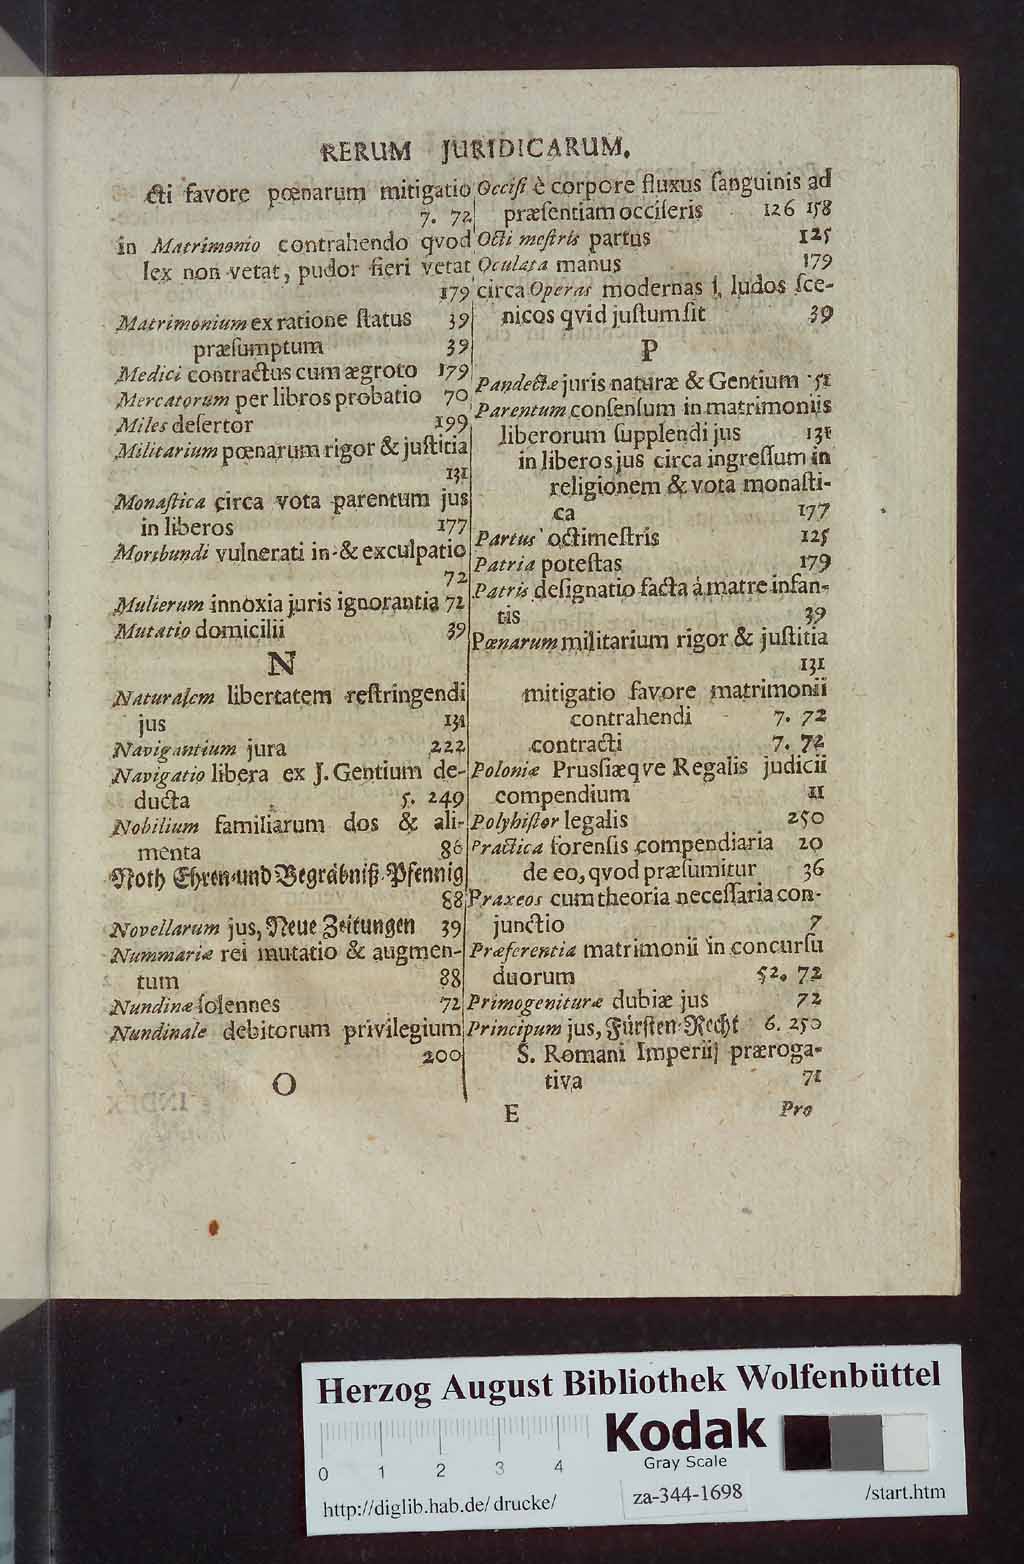 RERUM JURIDICARUM.
cti favore pœnarum mitigatio
7. 72
in Matrimonio contrahendo qvod
lex non vetat, pudor fieri vetat
179
Matrimonium ex ratione ſtatus 39
præſumptum 39
Medici contractus cum ægroto 179
Mercatorum per libros probatio 70
Miles deſertor 199
Militarium pœnarum rigor & juſtitia
131
Monaſtica circa vota parentum jus
in liberos 177
Moribundi vulnerati in- & exculpatio
72
Mulierum innoxia juris ignorantia 72
Mutatio domicilii 39
N
Naturalem libertatem reſtringendi
jus 131
Navigantium jura 222
Navigatio libera ex J. Gentium de-
ducta 5. 249
Nobilium familiarum dos & ali-
menta 86
Noth Ehren-und Begräbniß-Pfennig
88
Novellarum jus, Neue Zeitungen 39
Nummariæ rei mutatio & augmen-
tum 88
Nundinæ ſolennes 72
Nundinale debitorum privilegium
200
O
Occiſi è corpore fluxus ſanguinis ad
præſentiam occiſeris 126 158
Octi meſtris partus 125
Oculata manus 179
circa Operas modernas ſ. ludos ſce-
nicos qvid juſtum ſit 39
P
Pandectæ juris naturæ & Gentium 51
Parentum conſenſum in matrimoniis
liberorum ſupplendi jus 131
in liberos jus circa ingreſſum in
religionem & vota monaſti-
ca 177
Partus octimeſtris 125
Patria poteſtas 179
Patris deſignatio facta à matre infan-
tis 39
Pœnarum militarium rigor & juſtitia
131
mitigatio favore matrimonii
contrahendi 7. 72
contracti 7. 72
Poloniæ Prusſiæqve Regalis judicii
compendium 11
Polyhiſtor legalis 250
Practica forenſis compendiaria 20
de eo, qvod præſumitur 36
Praxeos cum theoria neceſſaria con-
junctio 7
Præferentia matrimonii in concurſu
duorum 52. 72
Primogenituræ dubiæ jus 72
Principum jus, Fürſten-Recht 6. 250
S. Romani Imperiij præroga-
tiva 71
E Pro
Herzog August Bibliothek Wolfenbüttel
0 1 2 3 4
Kodak
Gray Scale
http://diglib.hab.de/drucke/ za-344-1698 /start.htm